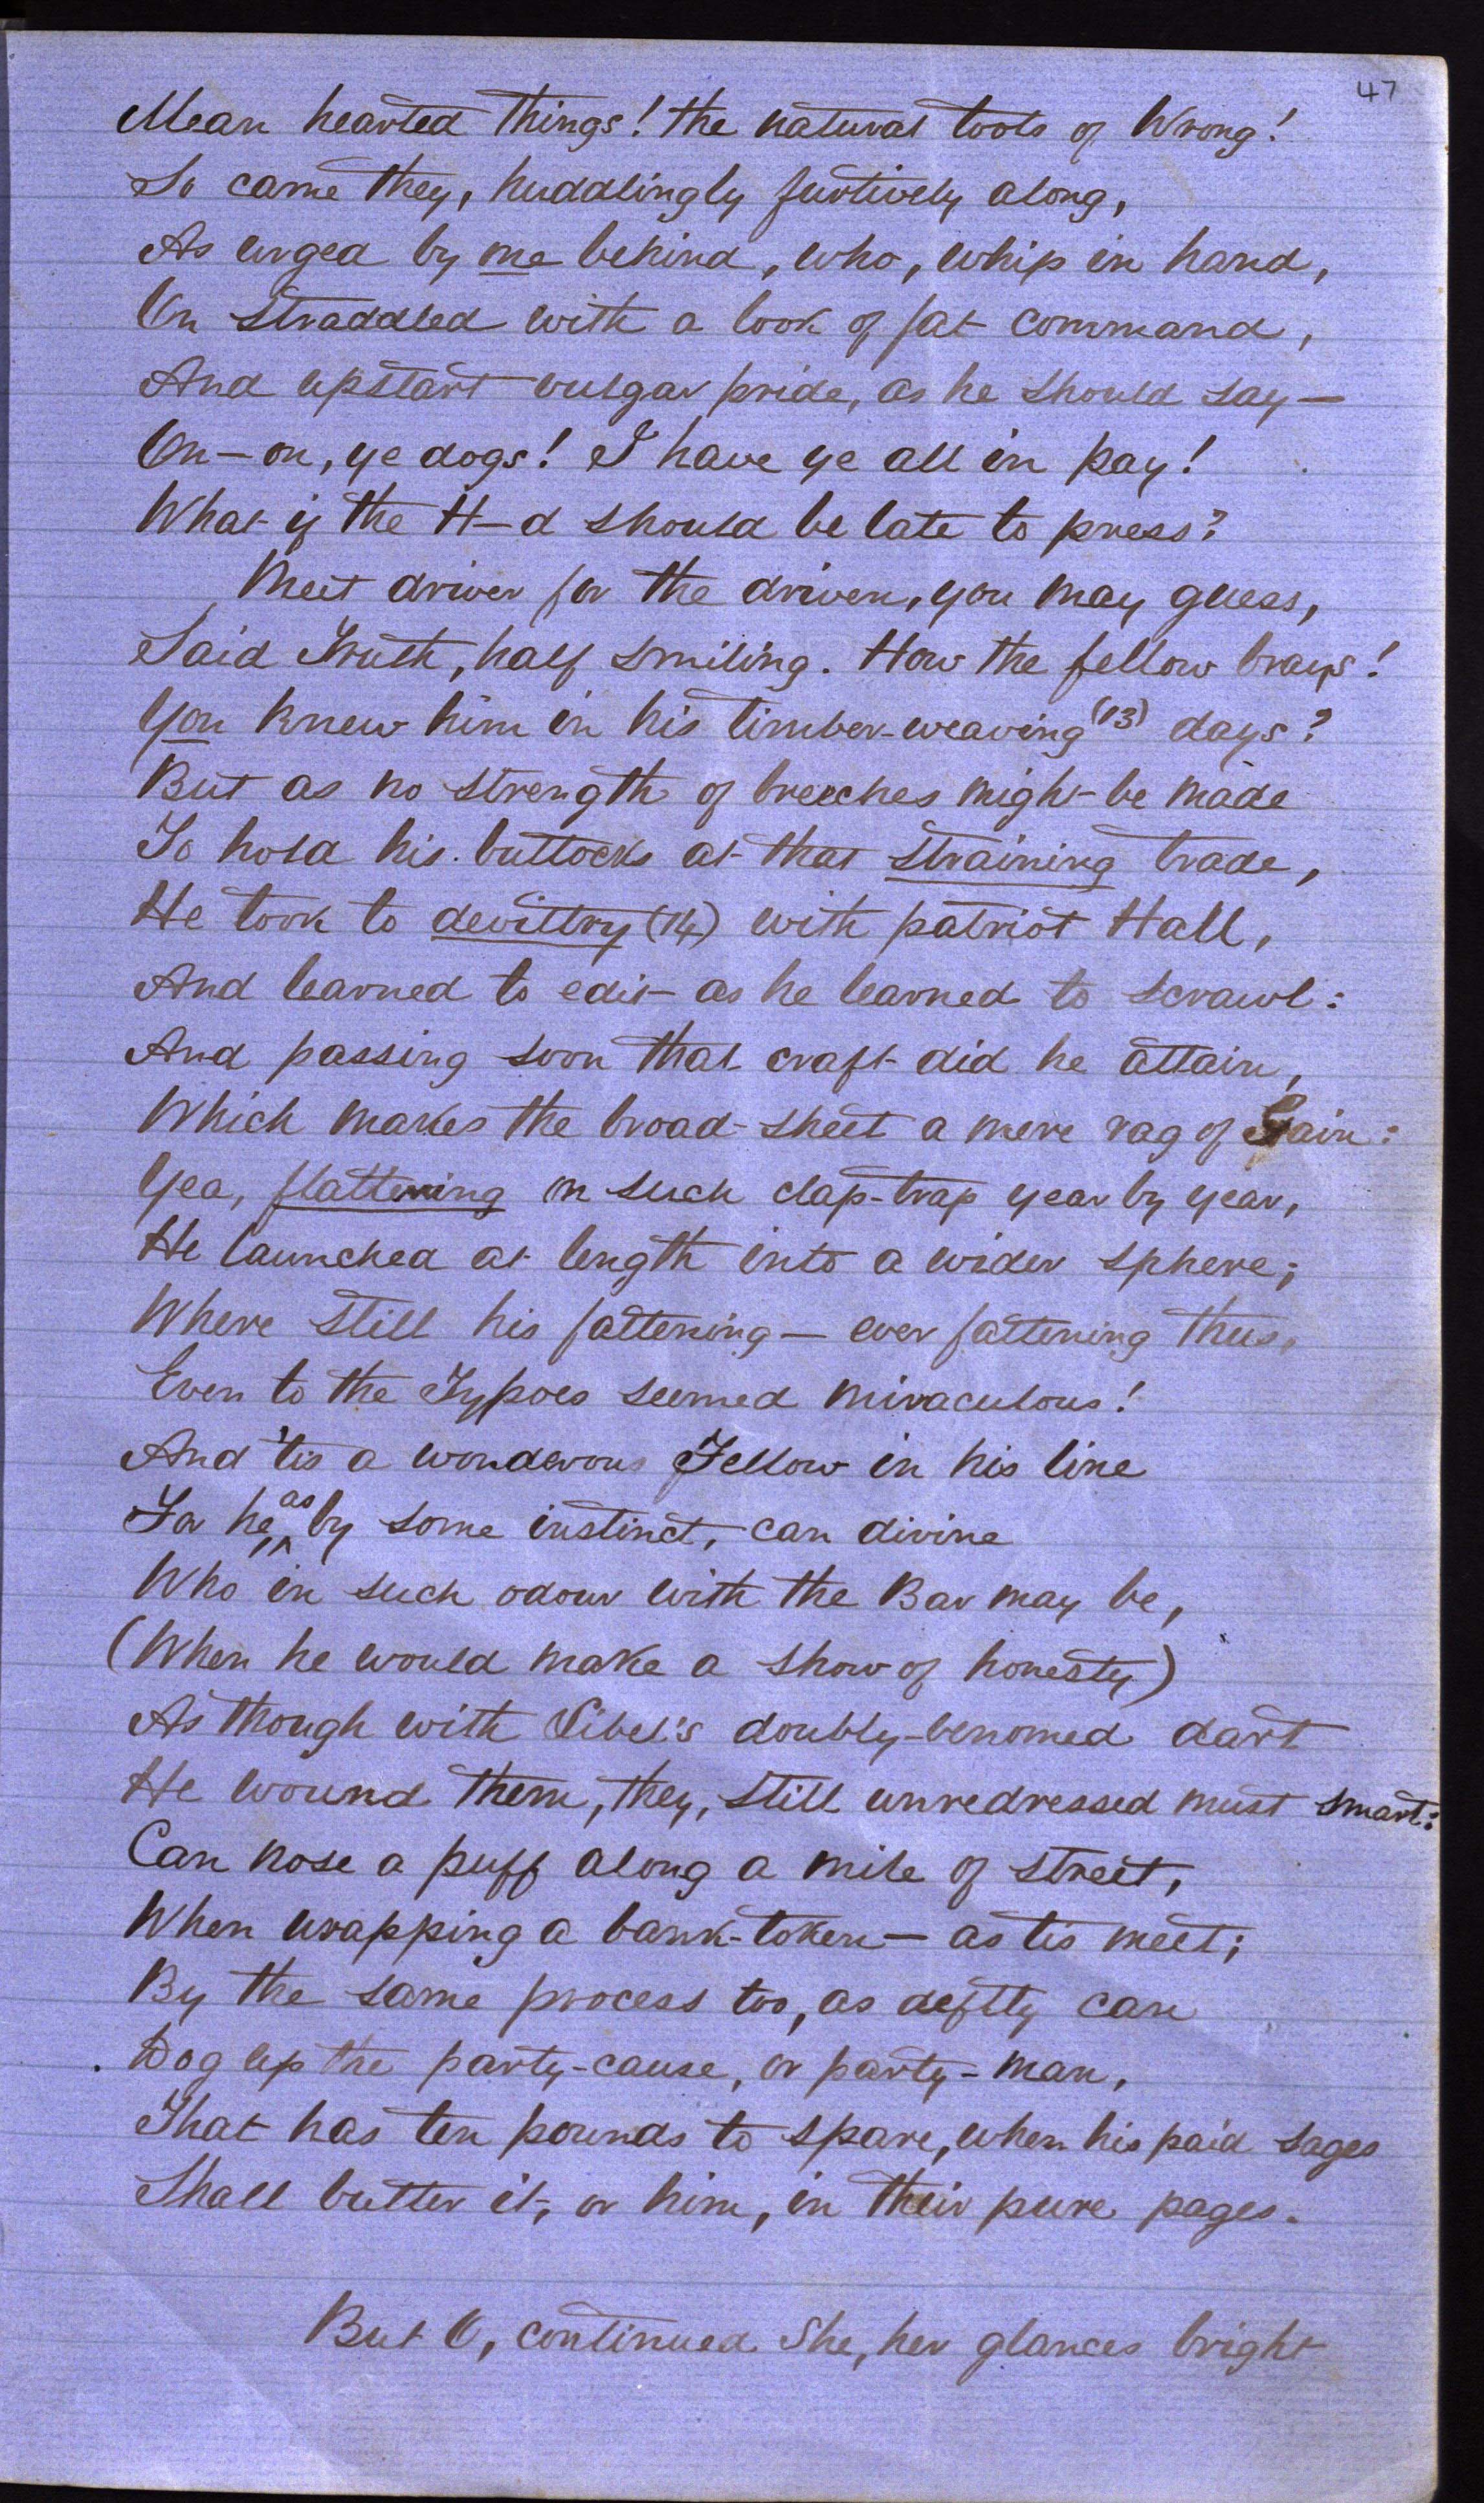 47
Mean hearted things! the natural tools of Wrong!
So came they, huddlingly furtively along,
As urged by one behind, who, whip in hand,
On straddled with a look of fat command,
And upstart vulgar pride, as he should say —
On — on, ye dogs! I have ye all in pay!
What if the H—d should be late to press?
Meet driver for the driven, you may guess,
Said Truth, half smiling. How the fellow brays!
You knew him in his timber-weaving (13) days?
But as no strength of breeches might be made
To hold his buttocks at that straining trade,
He took to devilltry (14) with patriot Hall,
And learned to edit as he learned to scrawl:
And passing soon that craft did he attain,
Which makes the broad-sheet a mere rag of Gain:
Yea, flattening on such clap-trap year by year,
He launched at length into a wider sphere;
Where still his fattening — ever fattening thus,
Even to the Typoes seemed miraculous!
And 'tis a wonderous Fellow in his line
For he, as by some instinct, can divine
Who in such odour with the Bar may be,
(When he would make a show of honesty)
As though with Libel's doubly-venomed dart
He wound them, they, still unredressed must smart:
Can nose a puff along a mile of street,
When wrapping a bank-token — as tis meet;
By the same process too, as deftly can
Dog up the party-cause, or party-man,
That has ten pounds to spare, when his paid sages
Shall butter it, or him, in their pure pages.
But O, continued She, her glances bright